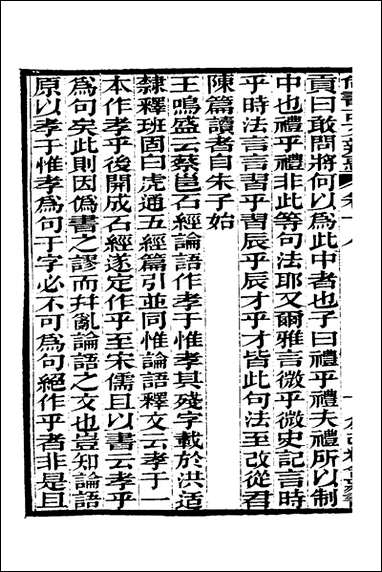 貢曰敢問將何以爲此中者也子曰禮乎禮夫禮所以制
中也禮乎禮非此等句法耶又爾雅言微乎微史記言時
乎時法言言習乎習辰乎辰才乎才皆此句法至改從君
陳篇讀者自朱子始
王鳴盛云蔡邕石經論語作孝于惟孝其殘字載於洪适
隸釋班固白虎通五經篇引並同惟論語釋文云孝于一
本作孝乎後開成石經遂定作乎至宋儒且以書云孝乎
爲句矣此則因僞書之謬而幷亂論語之文也豈知論語
原以孝于惟孝爲句于字必不可爲句絕作乎者非是且